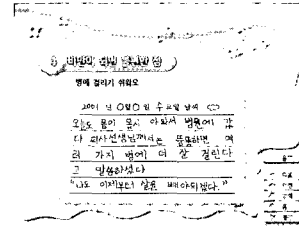 병에 걸리기 쉬워요
2001 년 0월 0일 수요일 날씨
오늘도 몸이 몹시 아파서 병원에 갔
다. 의사선생님께서는 뚱뚱하면 여
러 가지 병에 더 잘 걸린다
고 말씀하셨다.
"나도 이제부터 살을 빼야되겠다."